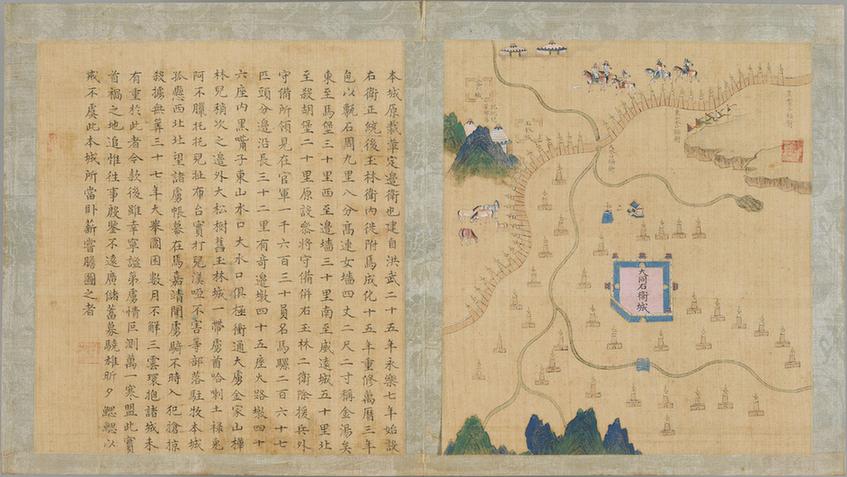 本城原載葦定邊衛也建自洪武二十五年永樂七年始設
右衛正統後玉林衛內徙附焉成化十五年重修萬曆三年
包以甎石周九里八分高連女墻四丈二尺二寸稱金湯矣
東至馬堡三十里西至邊墻三十里南至威遠城五十里北
至殺胡堡二十里原設參將守備併右玉林二衛除援兵外
守備所領見在官軍一千六百三十員名馬騾二百六十七
匹頭分邊沿長三十二里有奇邊墩四十五座火路墩四十
六座內黑嘴子東山水口大水口俱極衝通大虜金家山樺
林兒稍次之邊外大松樹舊玉林城一帶虜酋哈喇土祿兎
阿不臘托托兒扯布台實打兒漢啞不害等部落駐牧本城
孤懸西北北望諸虜帳幕在焉嘉靖間虜騎不時入犯搶掠
殺擄無算三十七年大舉圍困數月不解三雲環抱諸城未
有重於此者今款後雖幸寧謐第虜情叵測萬一寒盟此實
首禍之地追惟往事殷鑒不遠廣儲蓄募驍雄昕夕鰓鰓以
戒不虞此本城所當臥薪嘗膽圖之者
大同右衛城